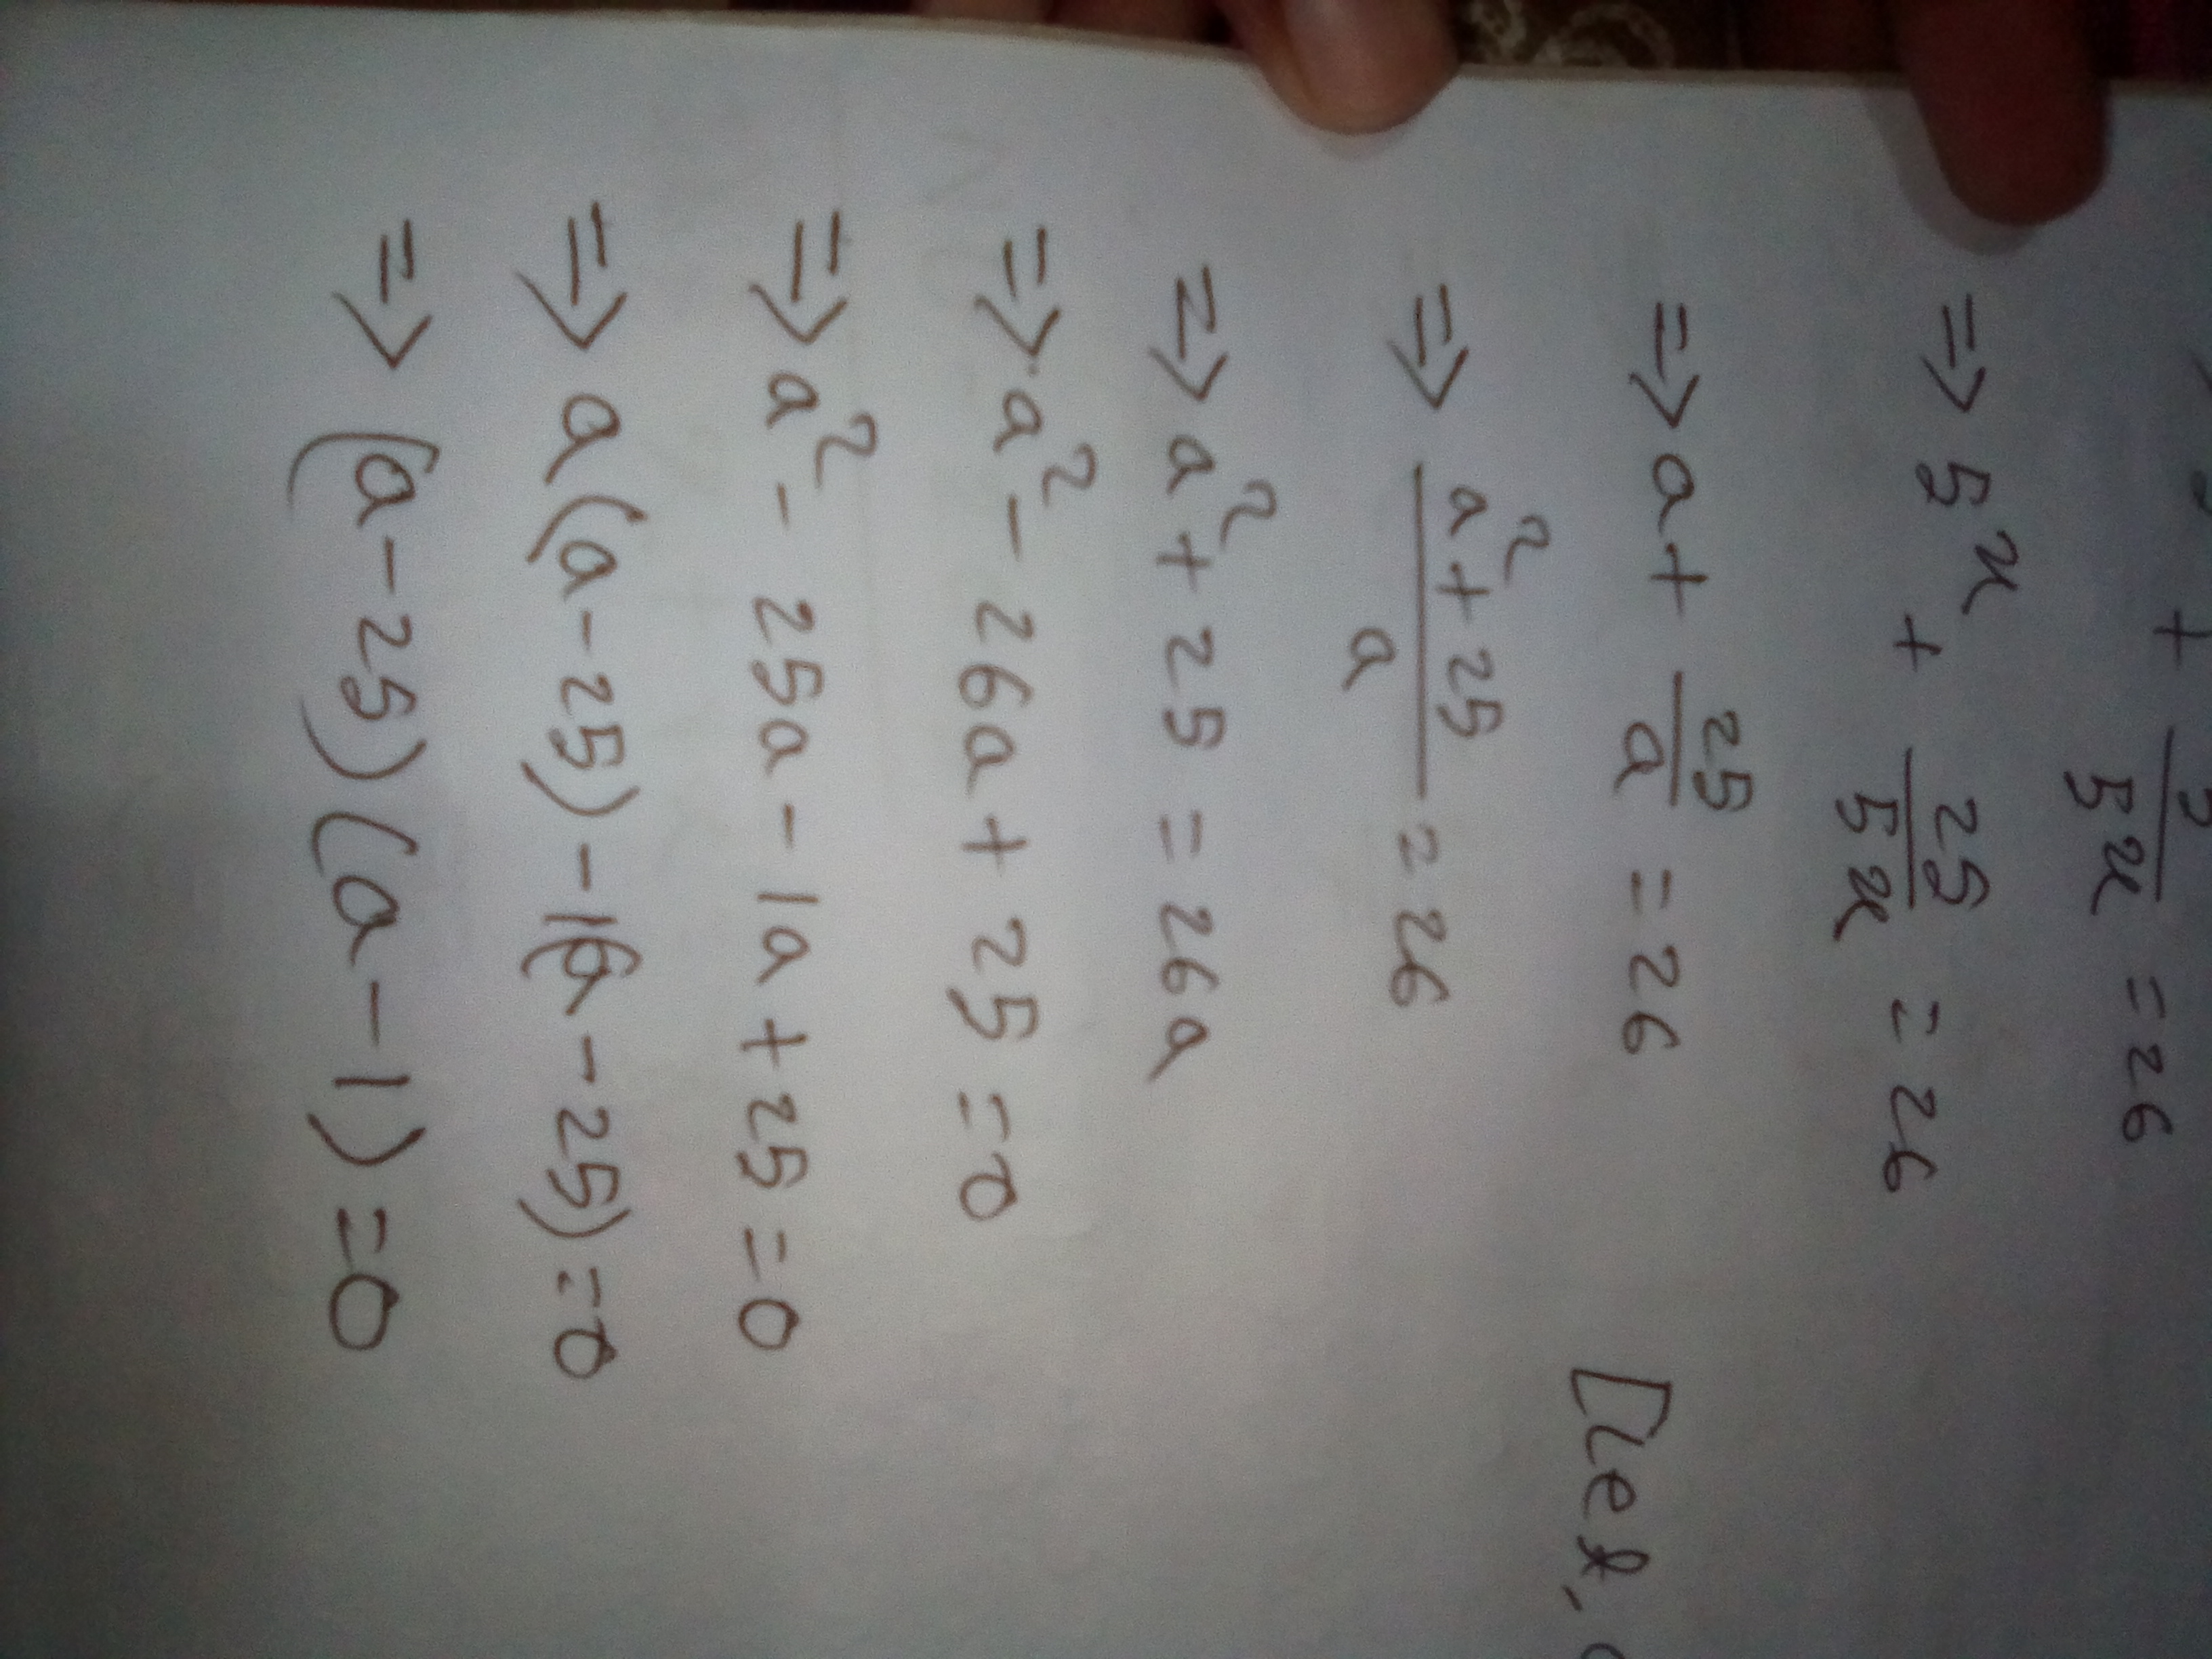 + —/5^x = 26
⇒ 5^x + 25/5^x = 26
⇒ a + 25/a = 26 [Let,
⇒ (a² + 25)/a = 26
⇒ a² + 25 = 26a
⇒ a² - 26a + 25 = 0
⇒ a² - 25a - 1a + 25 = 0
⇒ a(a-25) - 1(a-25) = 0
⇒ (a-25)(a-1) = 0